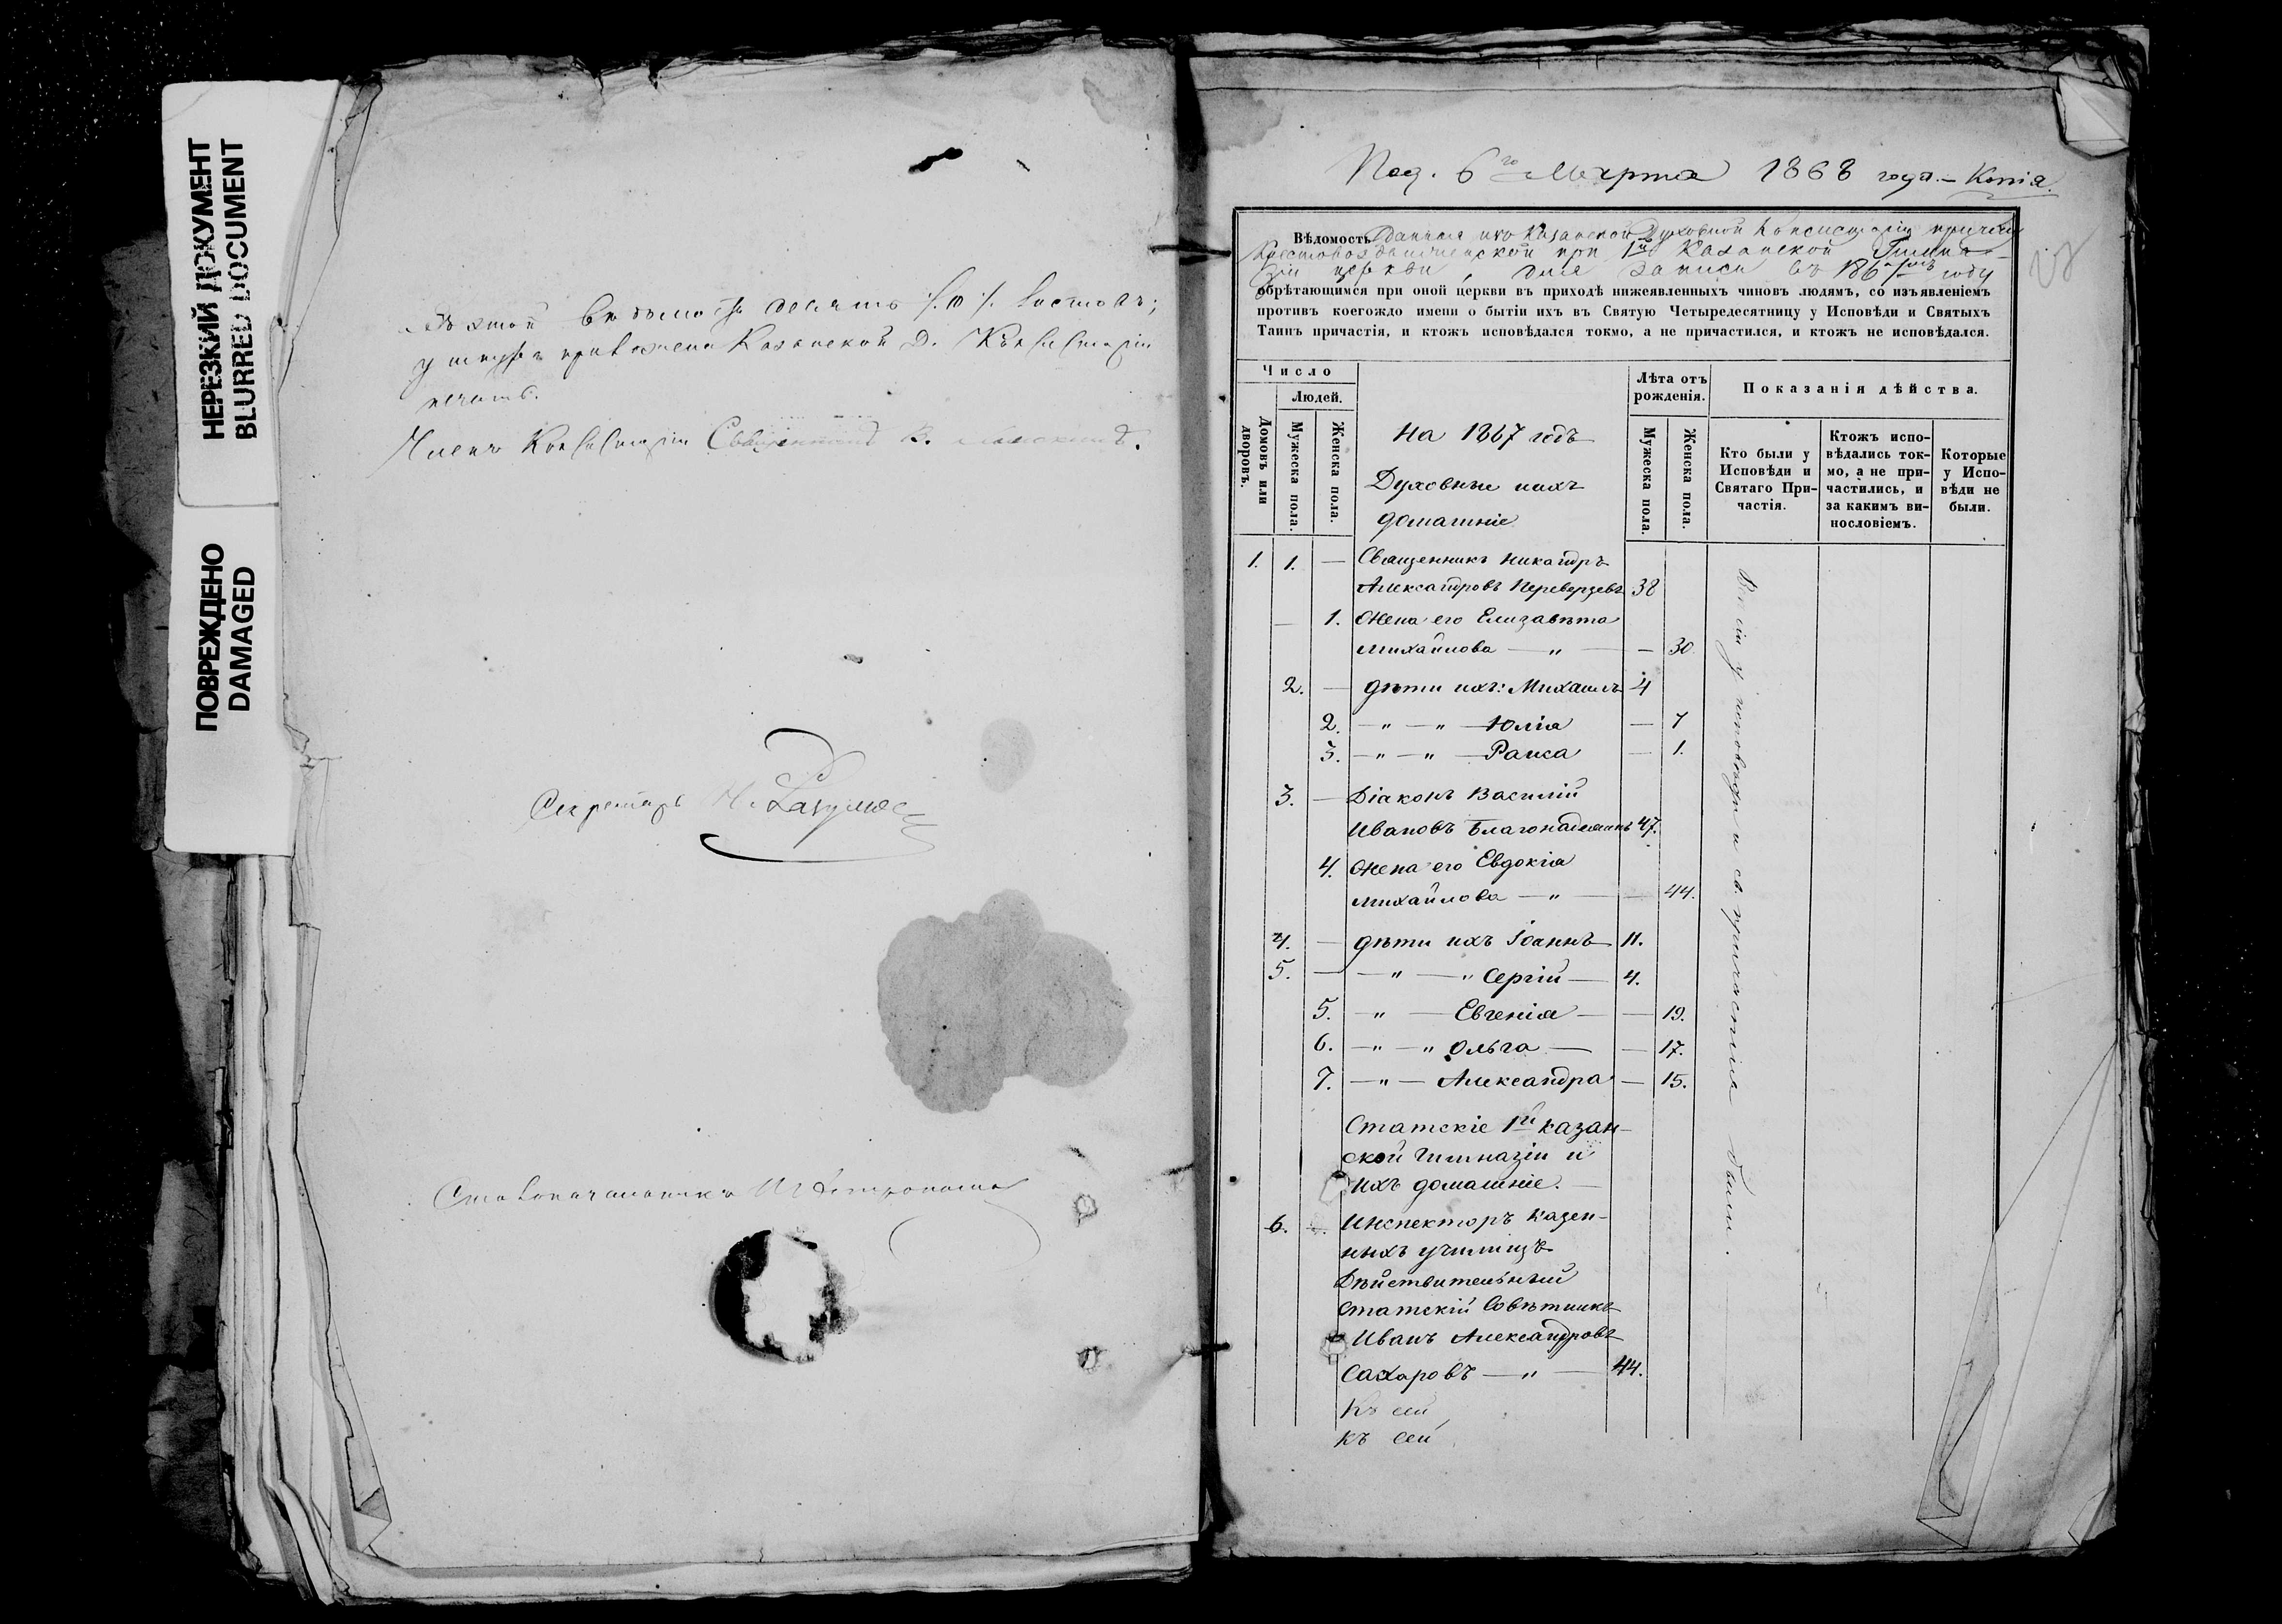 НЕРЕЗКИЙ ДОКУМЕНТ
BLURRED DOCUMENT
ПОВРЕЖДЕНО
DAMAGED
десять /.10/. листовъ;
Казанской Д. Консисторіи
печать.
Членъ Консисторіи Священникъ В.
Секретарь
Столоначальникъ
Под. 6го Марта 1868 года. – Копія.
Вѣдомость данная изъ Казанской Духовной Консисторіи причту
Крестовоздвиженской при 1й Казанской Гимна-
зіи церкви, для записи въ 1867мъ году
обрѣтающимся при оной церкви въ приходѣ нижеявленныхъ чиновъ людямъ, со изъявленіемъ
противъ коегождо имени о бытіи ихъ въ Святую Четыредесятницу у Исповѣди и Святыхъ
Таинъ причастія, и ктожъ исповѣдался токмо, а не причастился, и ктожъ не исповѣдался.
Число
Людей.
Домовъ или дворовъ.
Мужеска пола.
Женска пола.
На 1867 годъ
Духовные ихъ
домашніе
Лѣта отъ
рожденія.
Мужеска пола.
Женска пола.
Показанія дѣйства.
Кто были у
Исповѣди и
Святаго При-
частія.
Ктожъ испо-
вѣдались ток-
мо, а не при-
частились, и
за какимъ ви-
нословіемъ.
Которые
у Испо-
вѣди не
были.
1. 1. — Священникъ Никандръ
Александровъ Переверзевъ 38
— 1. Жена его Елизавѣта
Михайлова — „ — — 30
2. — дѣти ихъ: Михаилъ 4
2. — „ — „ — Юлія — 7
3. — „ — „ — Раиса — 1.
3. — Діаконъ Василій
Ивановъ 47.
4. Жена его Евдокія
Михайлова — „ — — 44.
4. — дѣти ихъ Іоаннъ — 11.
5. — — „ — „ Сергій — 4.
5. — „ — Евгенія — — 19.
6. — „ — „ Ольга — — 17.
7. — „ — Александра — 15.
Статскіе 1й Казан-
ской Гимназіи и
ихъ домашніе. —
6. — Инспекторъ Казен-
ныхъ училищъ
Дѣйствительный
Статскій Совѣтникъ
Иванъ Александровъ
Сахаровъ — „ — 44.
Къ сей
къ сей
у исповѣди и св. причастія были.